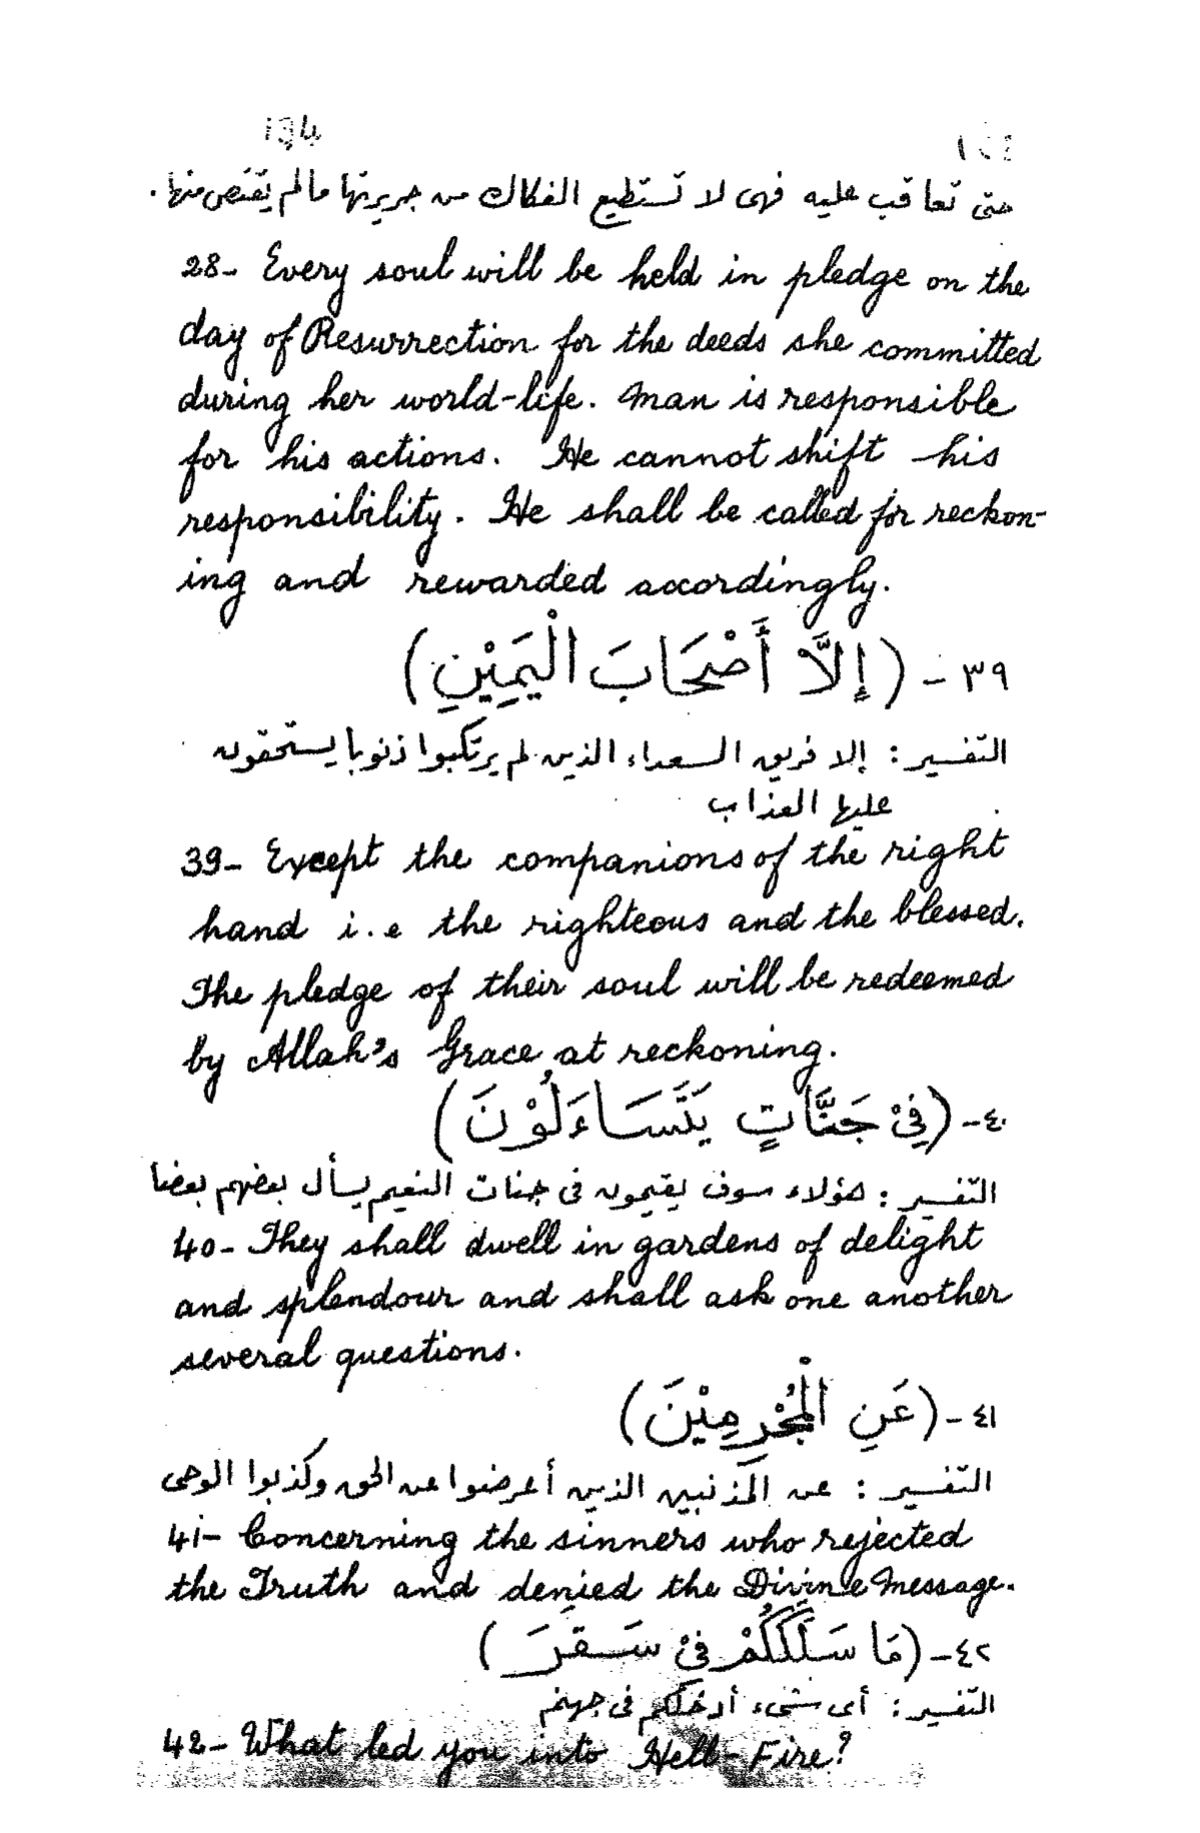 134
حتى تعاقب عليه فهى لا تستطيع الفكاك من جريرتها مالم يقتص منها.
28- Every soul will be held in pledge on the
day of Resurrection for the deeds she committed
during her world-life. Man is responsible
for his actions. He cannot shift his
responsibility. He shall be called for reckon-
ing and rewarded accordingly.
٣٩ - (إِلَّا أَصْحَابَ الْيَمِيْنِ)
التفسير: إلا فريق السعداء الذين لم يرتكبوا ذنوبا يستحقون
عليها العذاب
39- Except the companions of the right
hand i.e the righteous and the blessed.
The pledge of their soul will be redeemed
by Allah's Grace at reckoning.
٤٠- (فِيْ جَنَّاتٍ يَتَسَاءَلُوْنَ)
التفسير: هؤلاء سوف يقيمون فى جنات النعيم يسأل بعضهم بعضا
40- They shall dwell in gardens of delight
and splendour and shall ask one another
several questions.
٤١- (عَنِ الْمُجْرِمِيْنَ)
التفسير: عن المذنبين الذين أعرضوا عن الحق وكذبوا الوحى
41- Concerning the sinners who rejected
the Truth and denied the Divine Message.
٤٢- (مَا سَلَكَكُمْ فِيْ سَقَرَ)
التفسير: أى شىء أدخلكم فى جهنم
42- What led you into Hell-Fire?